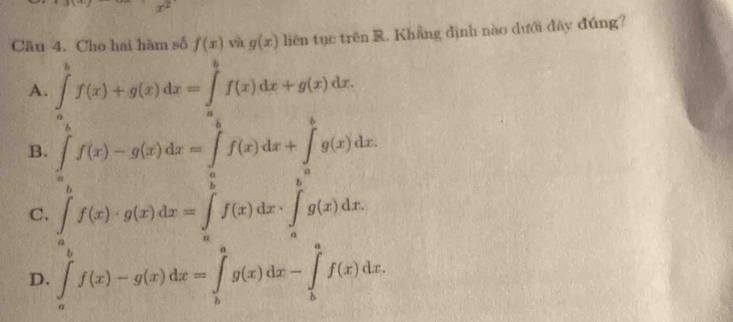 x²
Câu 4. Cho hai hàm số f(x) và g(x) liên tục trên ℝ. Khẳng định nào dưới đây đúng?
A. ∫_a^b f(x) + g(x) dx = ∫_a^b f(x) dx + g(x) dx.
B. ∫_a^b f(x) − g(x) dx = ∫_a^b f(x) dx + ∫_a^b g(x) dx.
C. ∫_a^b f(x) · g(x) dx = ∫_a^b f(x) dx · ∫_a^b g(x) dx.
D. ∫_a^b f(x) − g(x) dx = ∫_b^a g(x) dx − ∫_b^a f(x) dx.